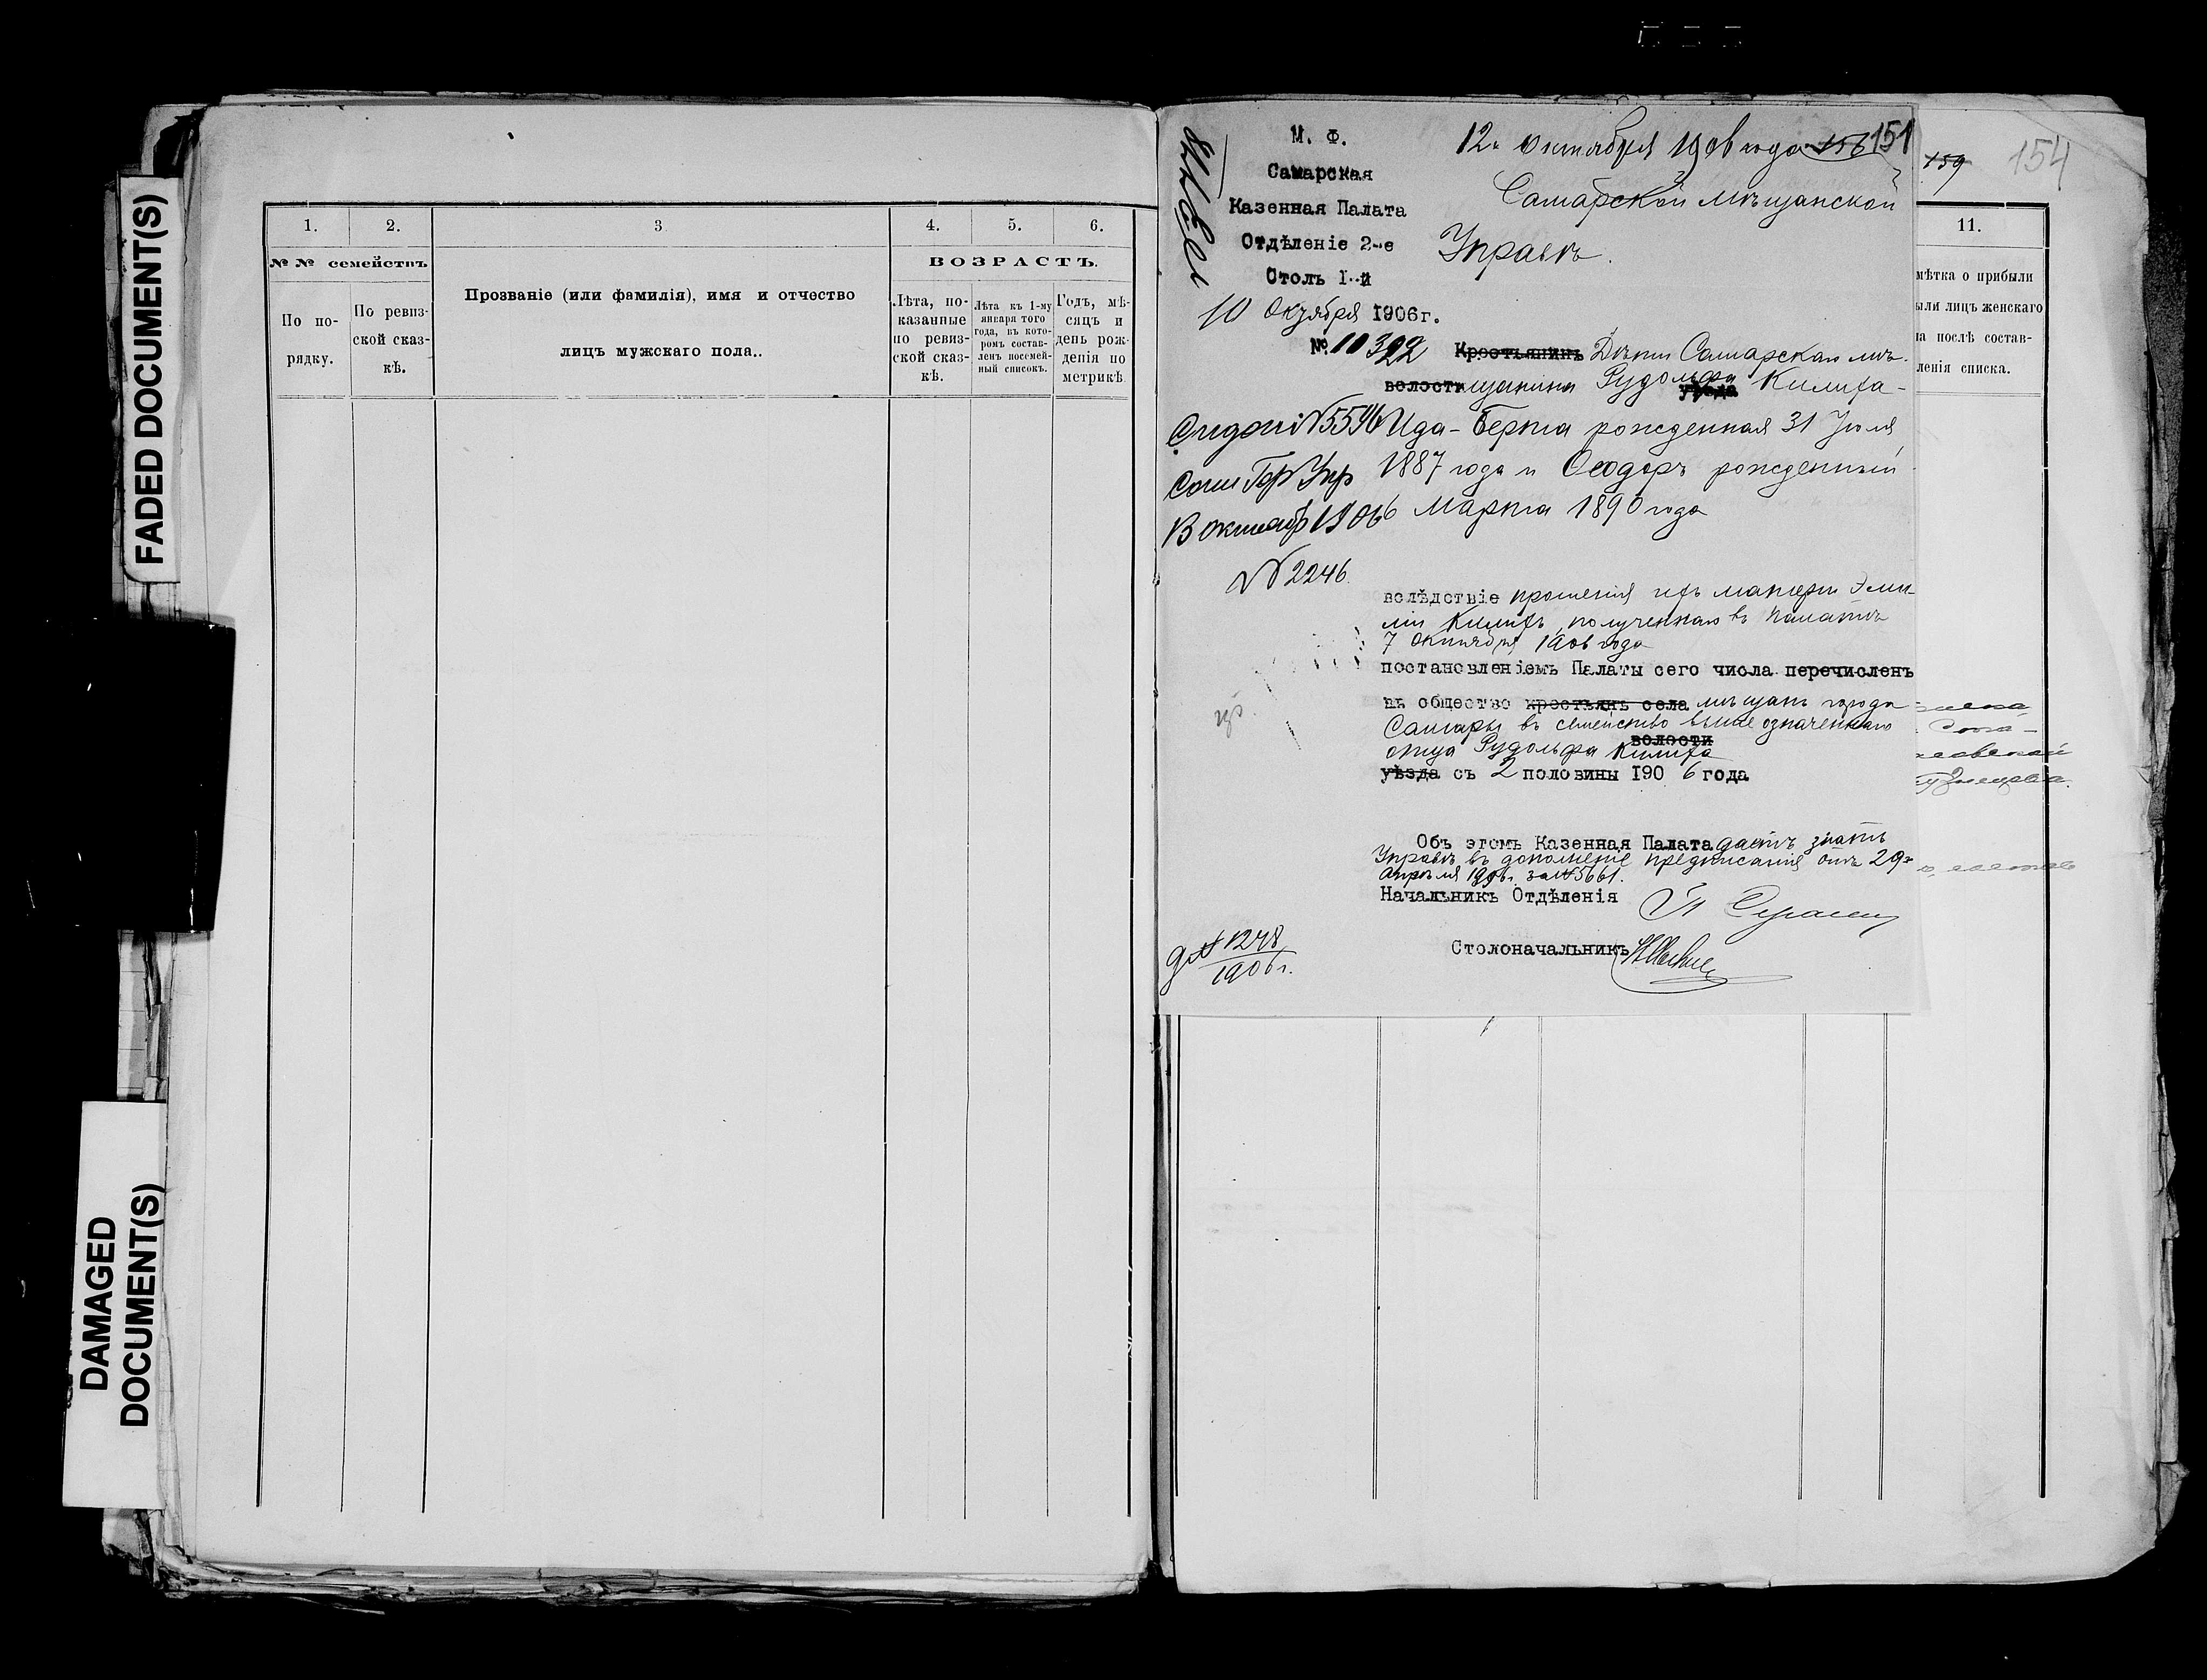 FADED DOCUMENT(S)
DAMAGED
DOCUMENT(S)
1. 2. 3 4. 5. 6.
№ № семействъ
ВОЗРАСТЪ.
По по-
рядку.
По ревиз-
ской сказ-
кѣ.
Прозваніе (или фамилія), имя и отчество
лицъ мужскаго пола..
Лѣта, по-
казанные
по ревиз-
ской сказ-
кѣ.
Лѣта къ 1-му
января того
года, въ кото-
ромъ состав-
ленъ посемей-
ный списокъ.
Годъ, мѣ-
сяцъ и
день рож-
денія по
метрикѣ
М. Ф.
Самарская
Казенная Палата
Отдѣленіе 2-е
Столъ I-й
10 Октября 1906г.
№ 10392
12 Октября 1906 года 156 151
Самарской мѣщанской
Управѣ.
Крестьянинъ Дѣти Самарскаго мѣ-
волости щанина Рудольфа уѣзда Килифа-
№5596 Ида-Берта рожденная 31 Іюля
1887 года и Ѳеодоръ рожденный
6 Марта 1890 года
№ 2246
вслѣдствіе прошенія ихъ матери Эми-
ліи Килифъ, полученнаго въ Палатѣ
7 Октября 1906 года
постановленіемъ Палаты сего числа перечисленъ
въ общество крестьянъ села мѣщанъ города
Самары въ семейство вышеозначеннаго
волости
отца Рудольфа Килифа
уѣзда съ 2 половины 190 6 года
Объ этомъ Казенная Палата даетъ знать
Управѣ въ дополненіе предписанія отъ 29
Апрѣля 1906 г. за №5661.
Начальникъ Отдѣленія
Столоначальникъ
д № 1248
1906 г.
159 154
11.
мѣтка о прибыли
ыли лицъ женскаго
ла послѣ состав-
ленія списка.